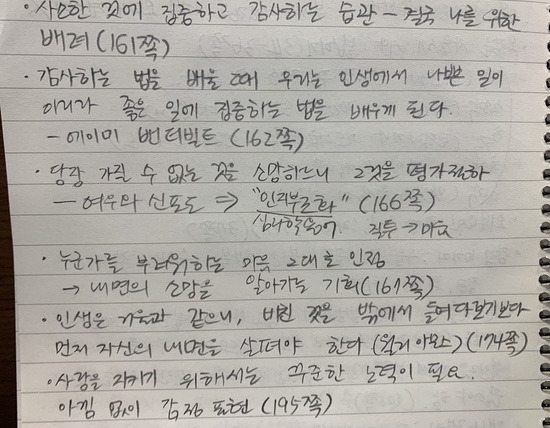 · 사소한 것에 집중하고 감사하는 습관 - 결국 나를 위한
배려 (161쪽)
· 감사하는 법을 배울 때 우리는 인생에서 나쁜 일이
아니라 좋은 일에 집중하는 법을 배우게 된다.
- 에이미 밴더빌트 (162쪽)
· 당장 가질 수 없는 것을 소망하느니 그것을 평가절하
- 여우와 신포도 ⇒ "인지부조화" (166쪽)
심리학용어 질투 →
· 누군가를 부러워하는 마음 그대로 인정
→ 내면의 소망을 알아가는 기회 (167쪽)
· 인생은 거울과 같으니, 비친 것을 밖에서 들여다보기보다
먼저 자신의 내면을 살펴야 한다 (월리 아모스) (174쪽)
· 사랑을 지키기 위해서는 꾸준한 노력이 필요.
아낌 없이 감정 표현 (195쪽)